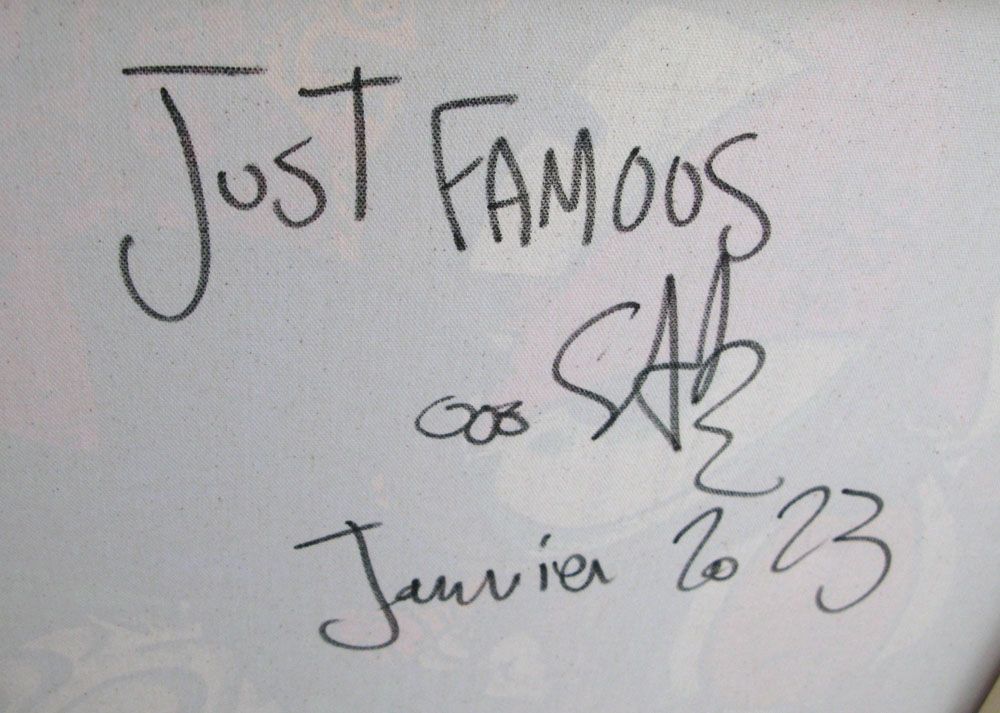 JUST FAMOOS
Janvier 2023